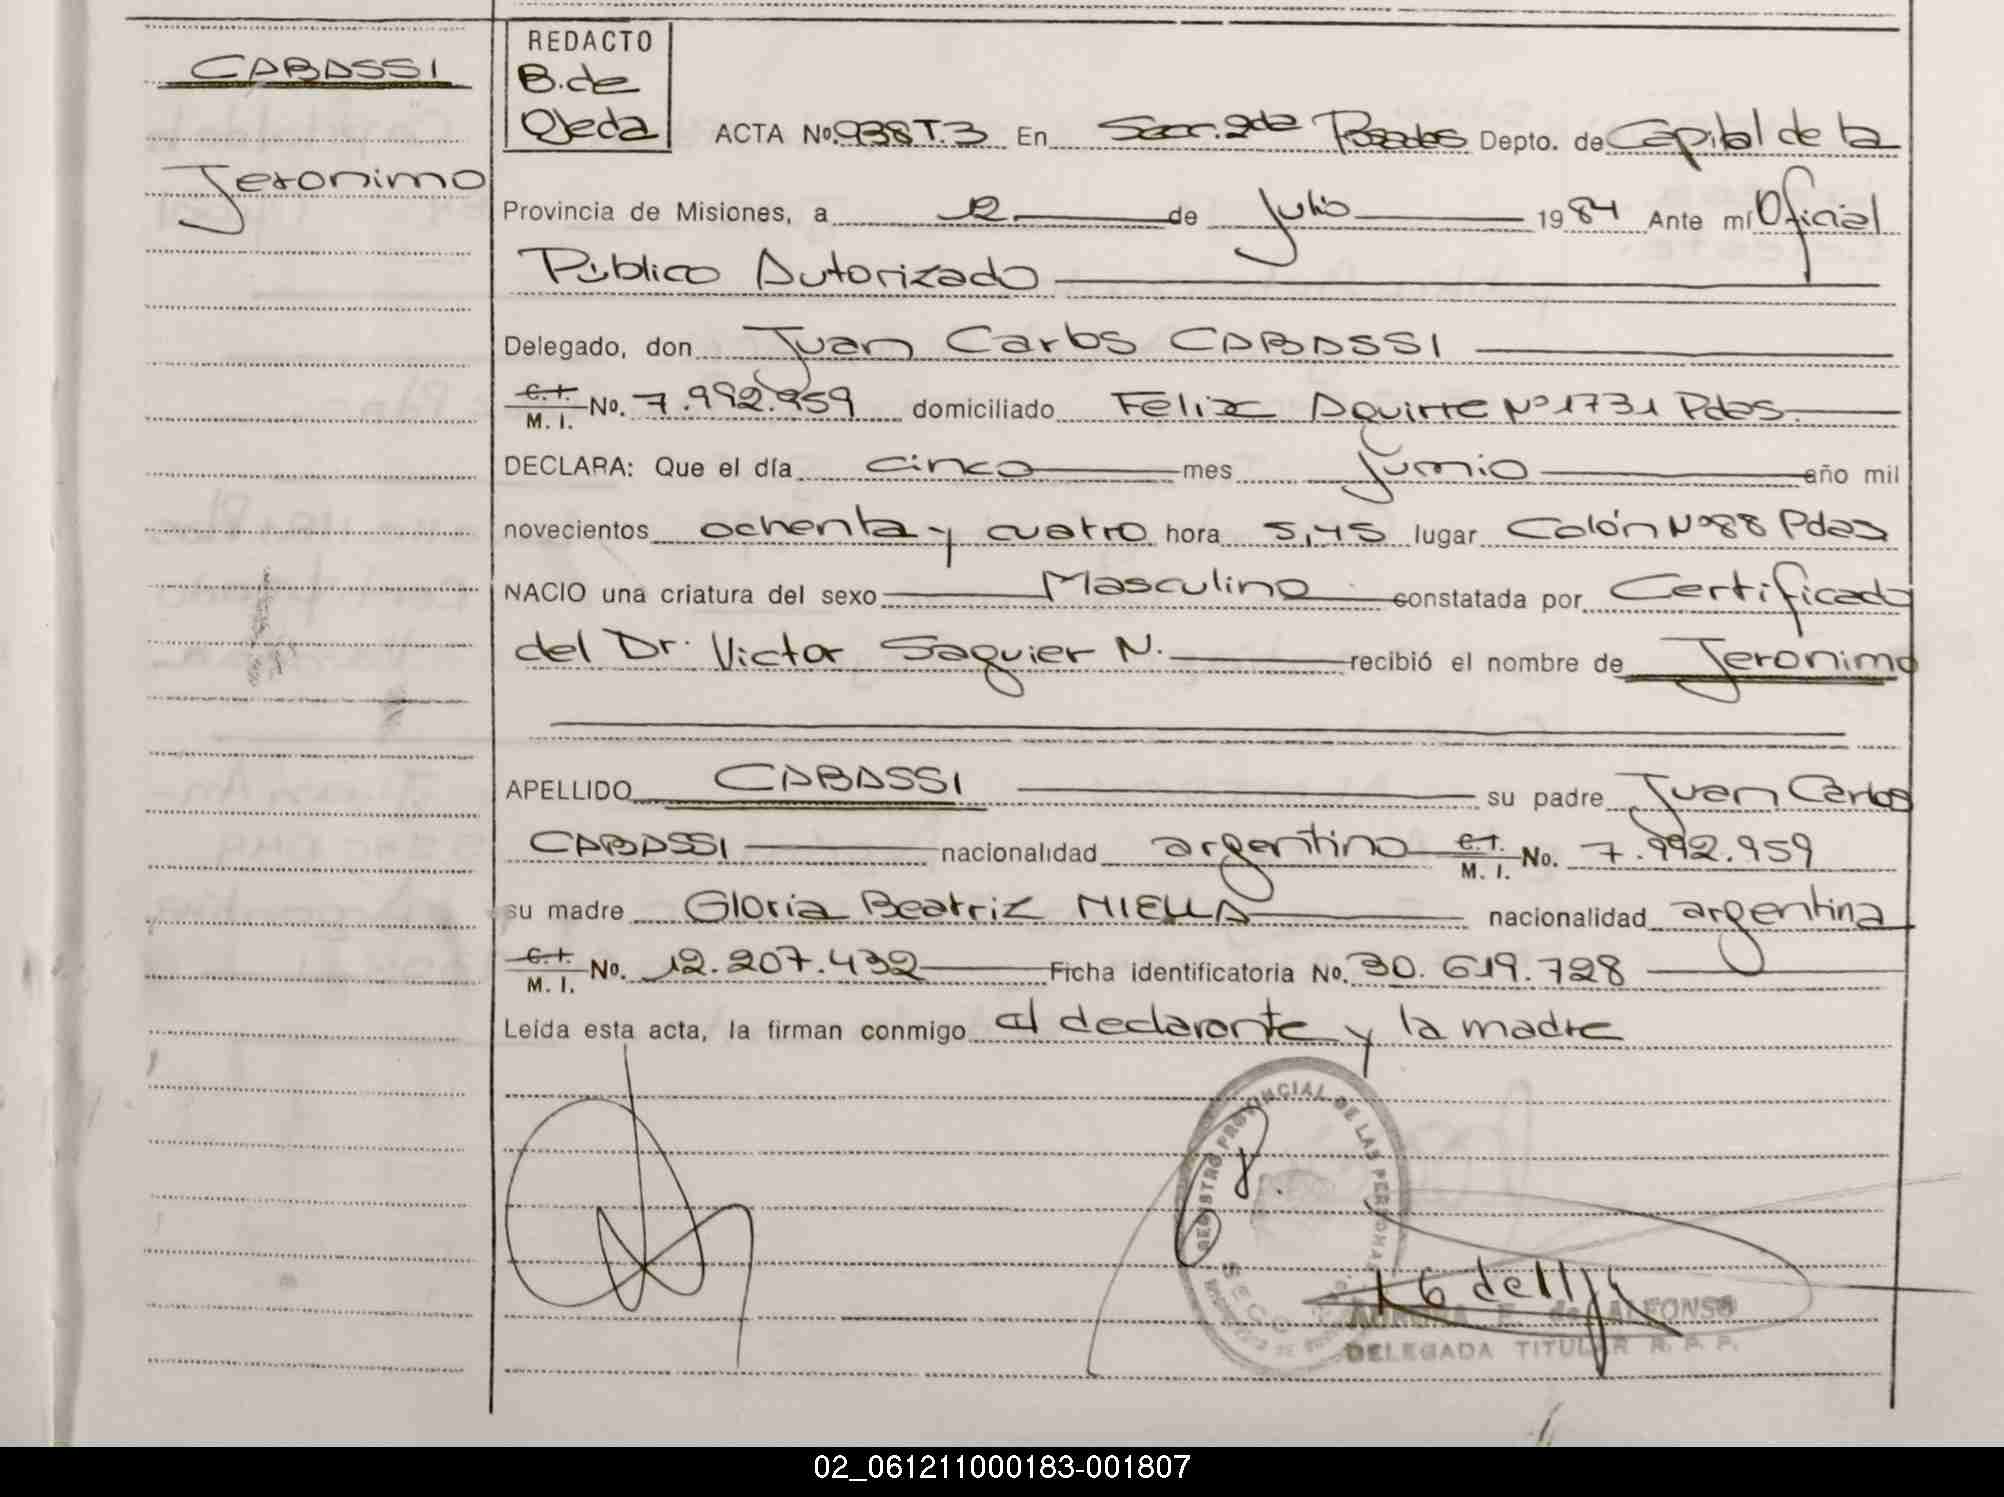 CABASSI
Jeronimo
REDACTO
B. de
Ojeda
ACTA No. 938 T. 3 En Secc. 2da Posadas Depto. de Capital de la
Provincia de Misiones, a 12 de Julio 1984 Ante mí Oficial
Público Autorizado
Delegado, don Juan Carlos CABASSI
C.I. M. I. No. 7.992.959 domiciliado Felix Aguirre Nº 1731 Pdas.
DECLARA: Que el día cinco mes junio año mil
novecientos ochenta y cuatro hora 5,45 lugar Colón Nº 88 Pdas
NACIO una criatura del sexo Masculino constatada por Certificado
del Dr. Victor Saguier N. recibió el nombre de Jeronimo
APELLIDO CABASSI su padre Juan Carlos
CABASSI nacionalidad argentino C.I. M. I. No. 7.992.959
su madre Gloria Beatriz NIELLA nacionalidad argentina
C.I. M. I. No. 12.207.432 Ficha identificatoria No. 30.619.728
Leída esta acta, la firman conmigo el declarante y la madre
REGISTRO PROVINCIAL DE LAS PERSONAS
E. de ALFONSO
DELEGADA TITULAR R. P. P.
02_061211000183-001807